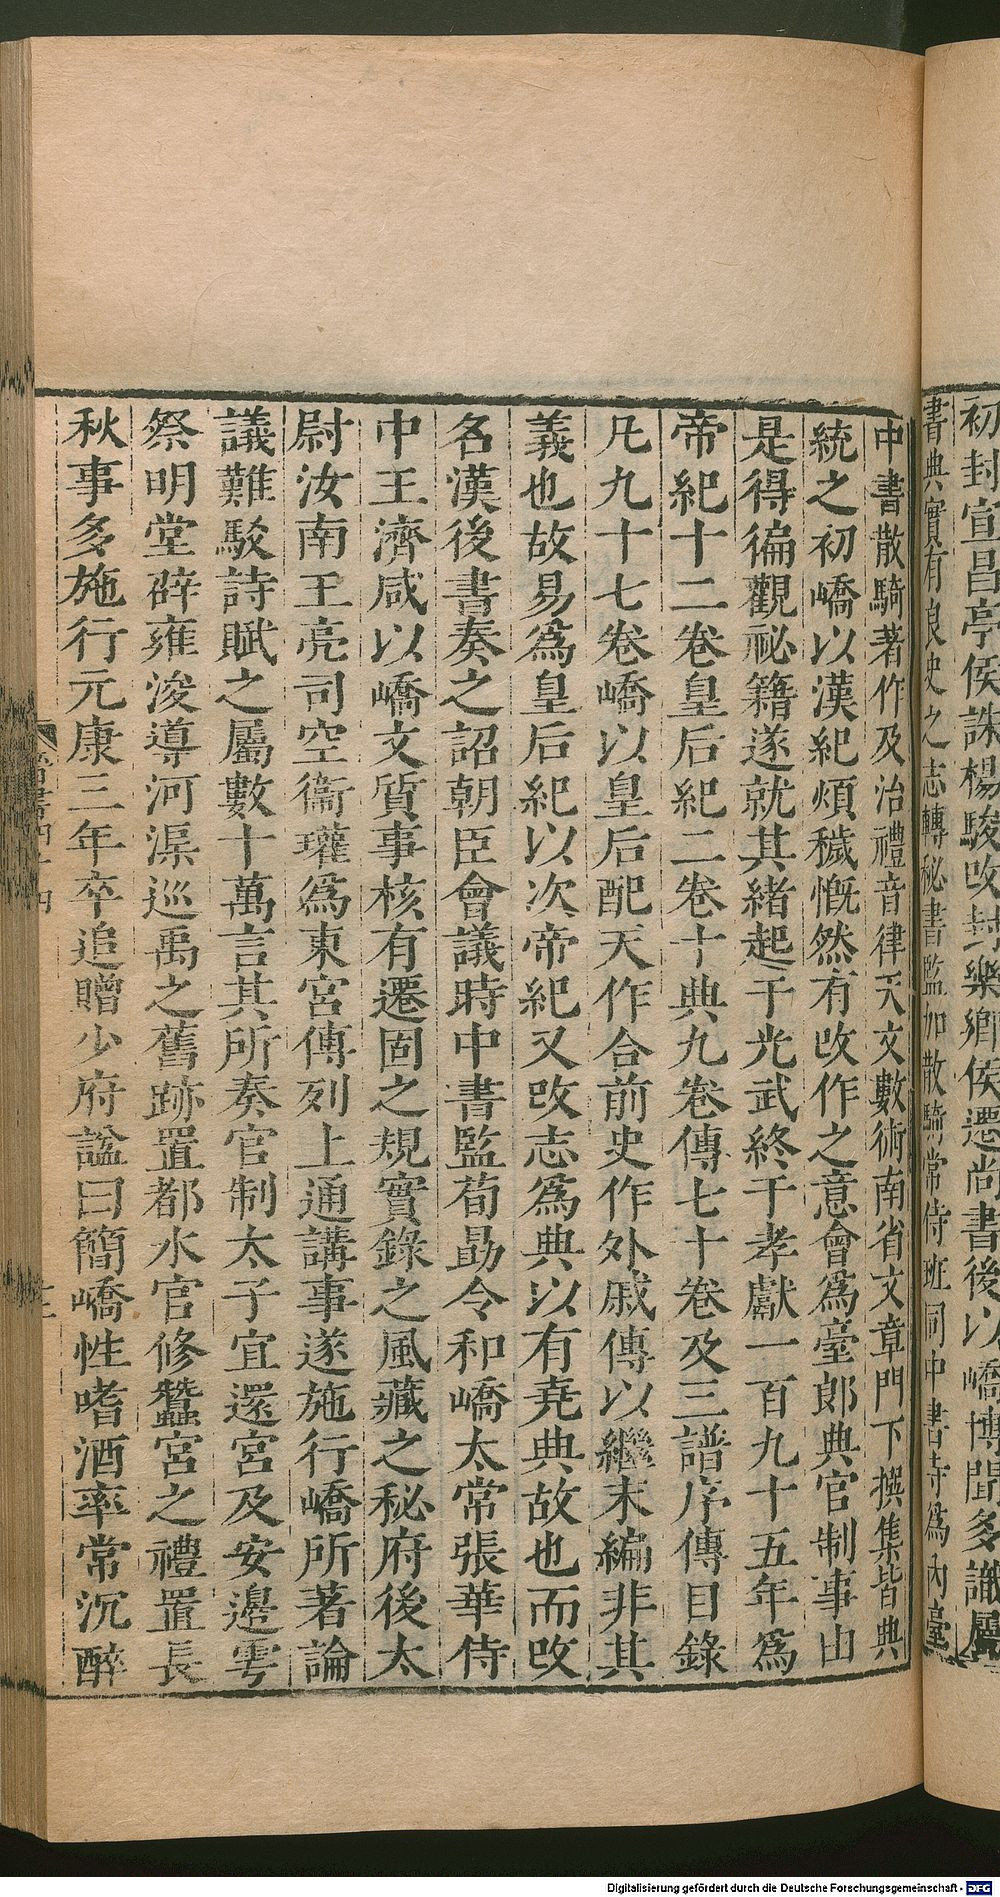 初封宣昌亭侯誅楊駿改封樂鄉侯遷尚書後以嶠博聞多識屬
書典實有良史之志轉秘書監加散騎常侍班同中書寺爲内臺
中書散騎著作及治禮音律天文數術南省文章門下撰集皆典
統之初嶠以漢紀煩穢慨然有改作之意會爲臺郎典官制事由
是得徧觀祕籍遂就其緒起于光武終于孝獻一百九十五年爲
帝紀十二卷皇后紀二卷十典九卷傳七十卷及三譜序傳目錄
凡九十七卷嶠以皇后配天作合前史作外戚傳以繼末編非其
義也故易爲皇后紀以次帝紀又改志爲典以有堯典故也而改
名漢後書奏之詔朝臣會議時中書監荀勗令和嶠太常張華侍
中王濟咸以嶠文質事核有遷固之規實錄之風藏之秘府後太
尉汝南王亮司空衞瓘爲東宮傅列上通講事遂施行嶠所著論
議難駁詩賦之屬數十萬言其所奏官制太子宜還宮及安邊雩
祭明堂辟雍浚導河渠巡禹之舊跡置都水官修蠶宮之禮置長
秋事多施行元康三年卒追贈少府諡曰簡嶠性嗜酒率常沉醉
Digitalisierung gefördert durch die Deutsche Forschungsgemeinschaft - DFG